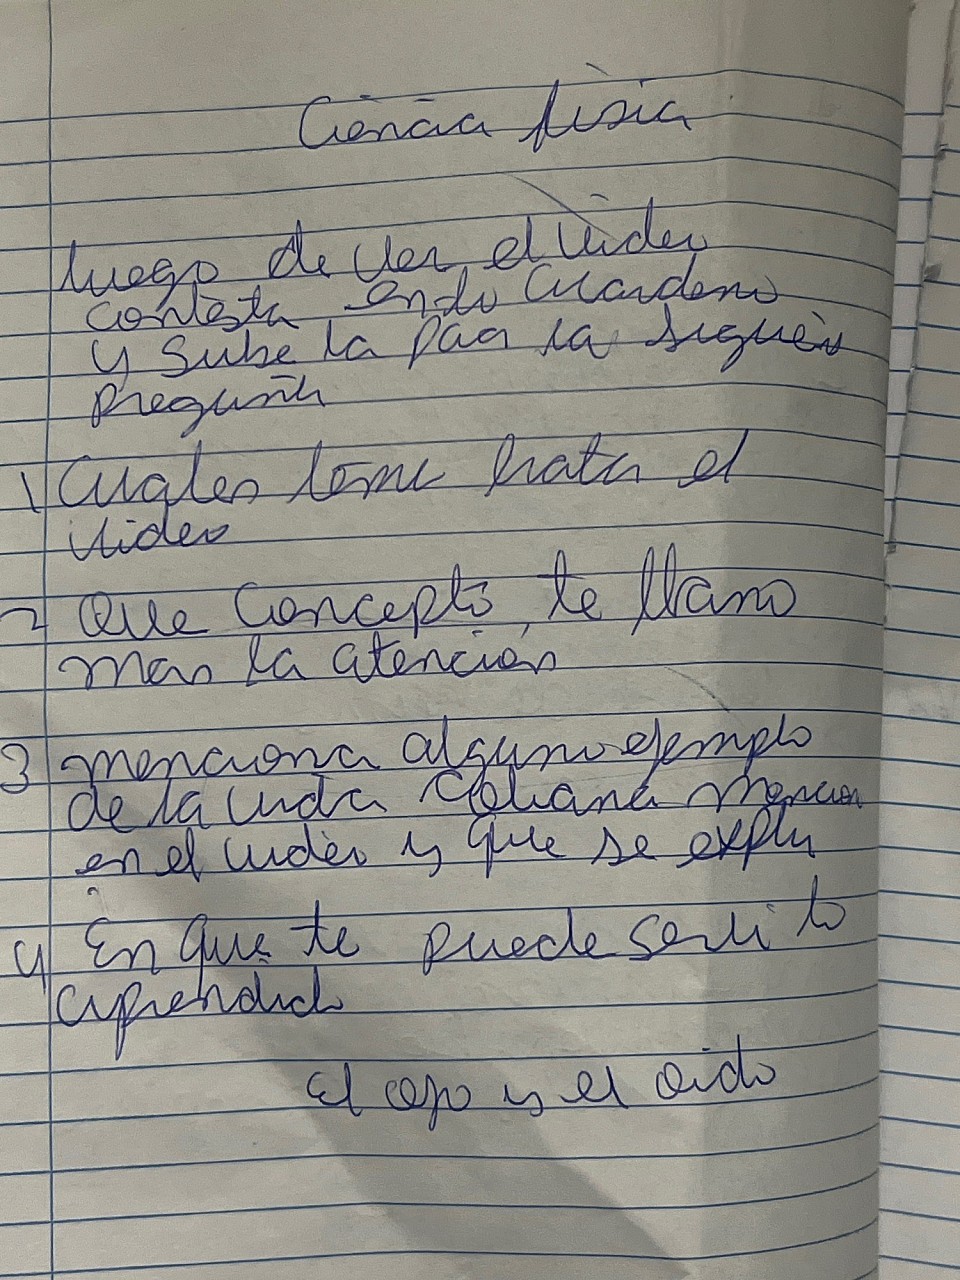 Ciencia fisica
luego de ver el video
contesta en tu Cuarderno
y sube la pag la siguien
pregunta
1 Cuales tema trata el
video
2 Que Concepto te llamo
mas la atencion
3 menciona alguno ejemplo
de la vida mencion
en el video y que se expli
4 En que te puede servi lo
aprendido
El ojo y el oido